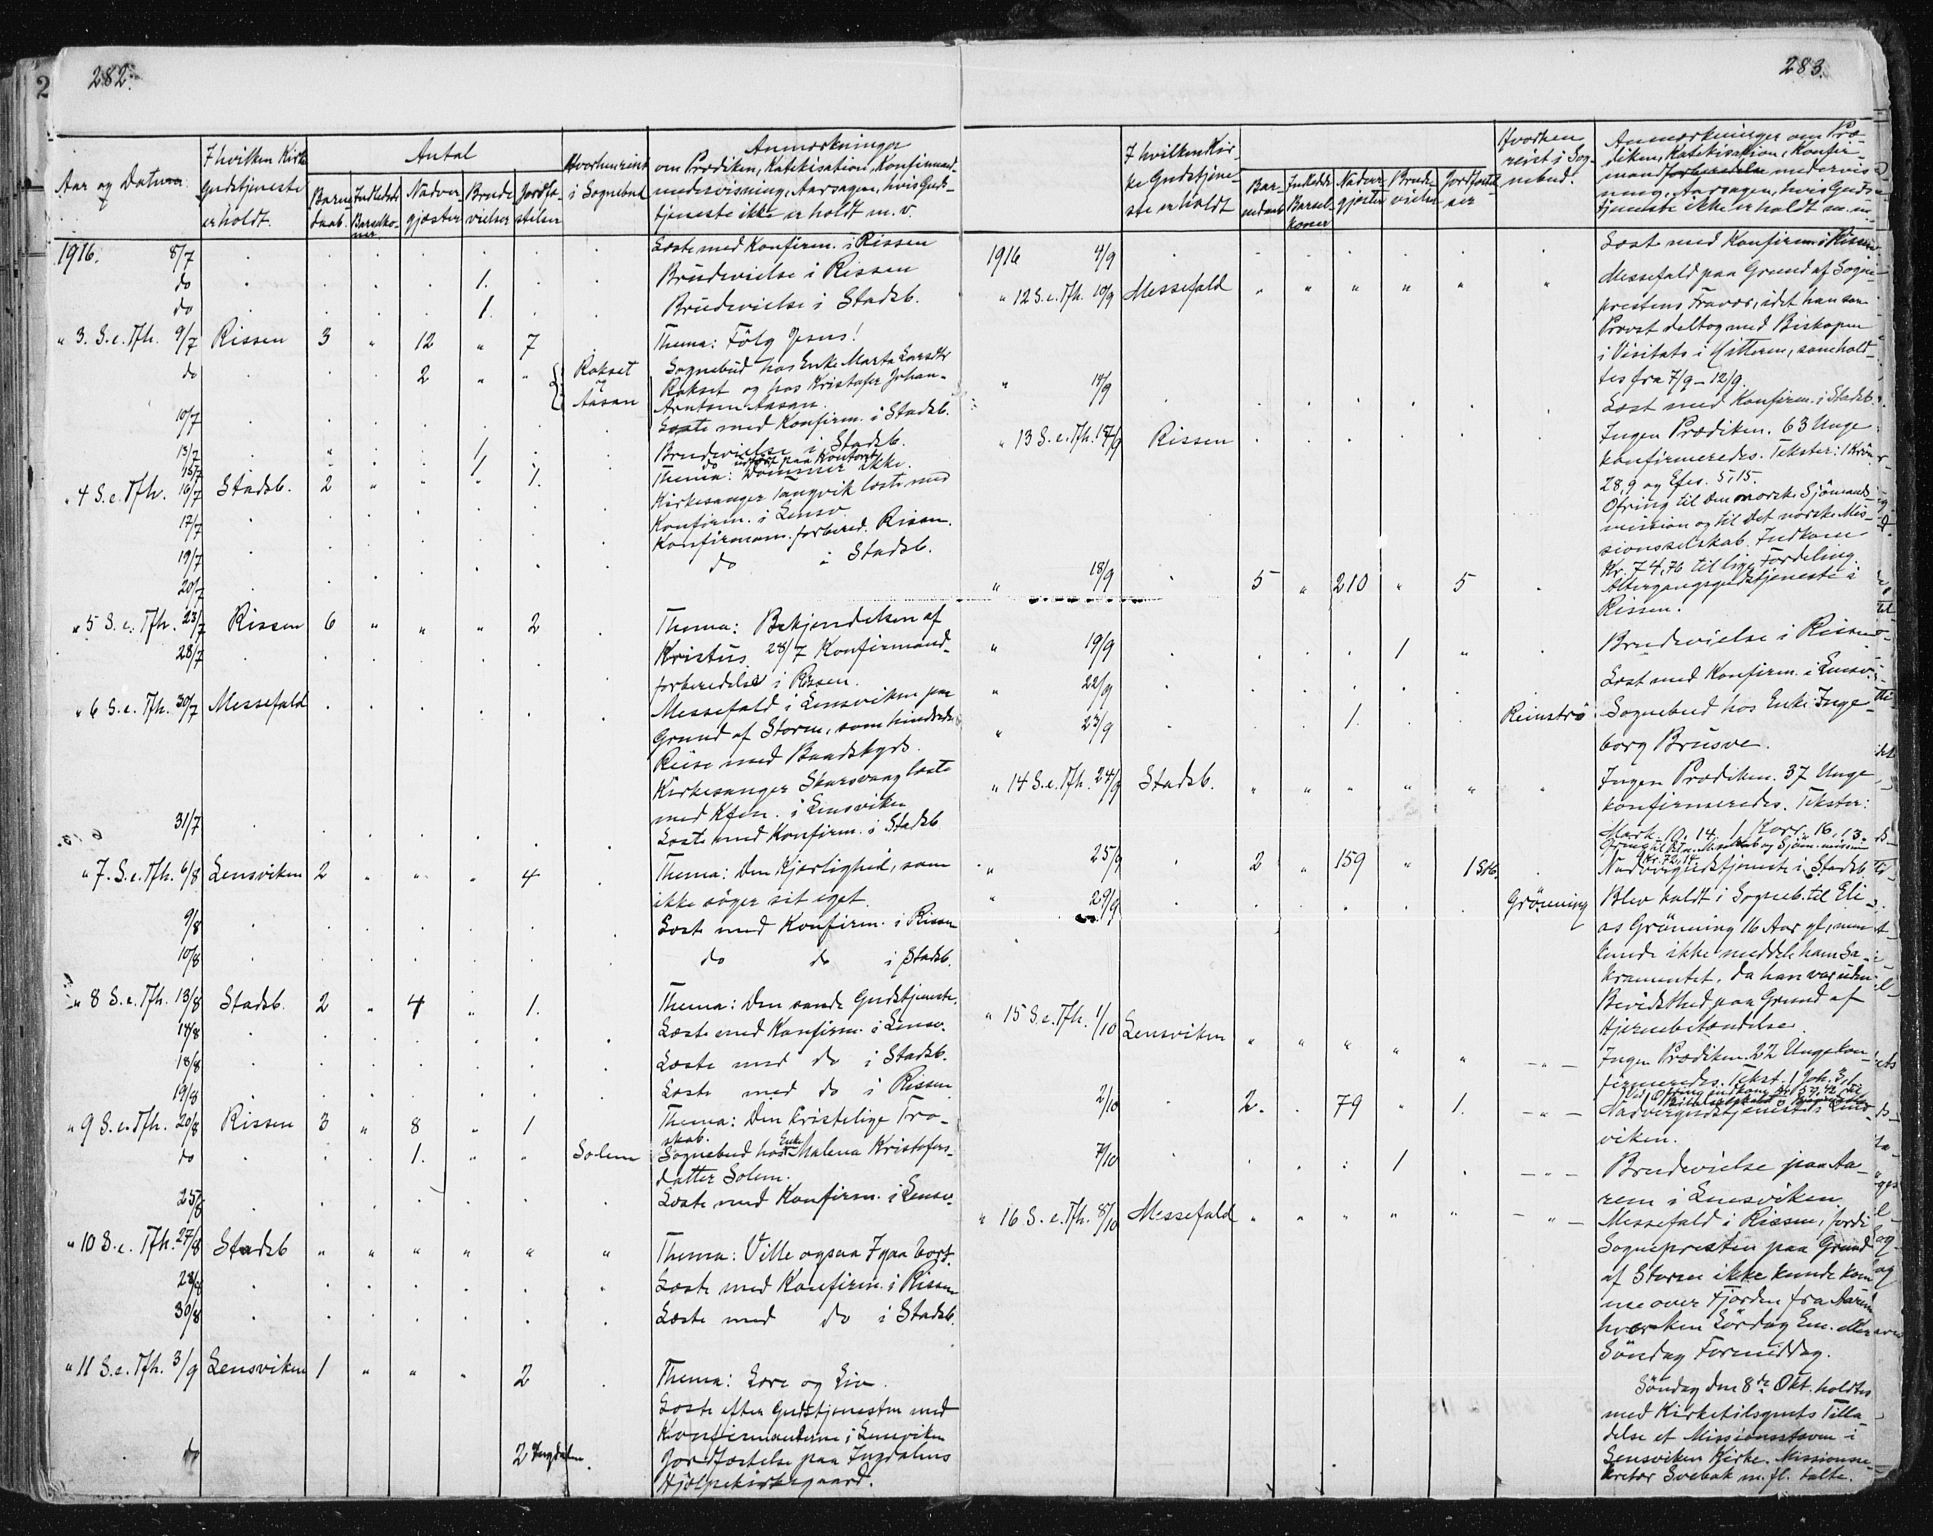 282.
Aar og Datum
I hvilken Kirke Gudstjeneste er holdt.
Antal
Barne daab.
Indledede Barselkoner
Nadver gjæster
Brude vielser
Jordfæstelser
Hvorhen reist i Sognebud
Anmærkninger
om Prædiken, Katekisation, Konfirmand-
undervisning, Aarsagen, hvis Guds-
tjeneste ikke er holdt m. v.
1916. 8/7 Læste med Konfirm. i Rissen
do 1. Brudevielse i Rissen
do 1. Brudevielse i Stadsb.
" 3. S. e. Tfh. 9/7 Rissen 3 " 12 " 7 Thema: Følg Jesus!
do 2 " " Rokset og Aasan Sognebud hos Enke Marta Larsdtr
Rokset og hos Kristofer Johan-
Arntsen Aasan.
10/7 Læste med Konfirm. i Stadsb.
13/7 1 Brudevielse i Stadsb.
15/7 1 do udført paa Kontoret
" 4 S. e. Tfh. 16/7 Stadsb. 2 " " " 1. Thema: Dømmer ikke.
17/7 Kirkesanger Tangvik læste med
Konfirm. i Lensv.
19/7 Konfirmam. forbered. Rissen.
20/7 do i Stadsb.
" 5 S. e. Tfh. 23/7 Rissen 6 " " " 2 Thema: Bekjendelsen af
28/7 Kristus. 28/7 Konfirmand-
forberedelse i Rissen.
" 6 S. e. Tfh. 30/7 Messefald Messefald i Lensviken paa
Grund af Storm, som hindrede
Reise med Baadskyds.
Kirkesanger Skarsvaag læste
med Kfm. i Lensviken
31/7 Læste med Konfirm. i Stadsb
" 7. S. e. Tfh. 6/8 Lensviken 2 " " " 4 Thema: Den Kjærlighed, som
ikke søger sit eget.
9/8 Læste med Konfirm. i Rissen
10/8 do do i Stadsb.
" 8 S. e. Tfh. 13/8 Stadsb. 2 " 4 " 1. Thema: Den sande Gudstjeneste.
14/8 Læste med Konfirm. i Lensv.
18/8 Læste med do i Stadsb.
19/8 Læste med do i Rissen
" 9 S. e. Tfh. 20/8 Rissen 3 " 8 " 1 Thema: Den kristelige Tro-
skab.
do 1. " " Solem Sognebud hos Enke Malena Kristofers-
datter Solem.
25/8 Læste med Konfirm. i Lensv.
" 10 S. e. Tfh. 27/8 Stadsb " " " " " " Thema: Ville ogsaa I gaa bort.
28/8 Læste med Konfirm. i Rissen
30/8 Læste med do i Stadsb.
" 11 S. e. Tfh. 3/9 Lensviken 1 " " " 2 Thema: Lære og Liv.
Læste efter Gudstjenesten med
Konfirmanderne i Lensviken
do 2 Ingdalen Jordfæstelse paa Ingdalens
Hjælpekirkegaard.
283.
I hvilken Kir-
ke Gudstjene-
ste er holdt
Bar-
nedaab
Indledede
Barsel-
koner
Nadver-
gjæster
Brude-
vielser
Jordfæstel-
ser
Hvorhen
reist i Sog-
nebud.
Anmærkninger om Præ-
diken, Katekisation, Konfir-
mandforberedelse undervis-
ning, Aarsagen, hvis Guds-
tjeneste ikke er holdt m. v.
1916 4/9 Læst med Konfirm. i Rissen
" 12 S. e. Tfh. 10/9 Messefald " " " " " " Messefald paa Grund af Sogne-
prestens Fravær, idet han som
Provst deltog med Biskopen
i Visitats i Hitteren, som hold-
tes fra 7/9 - 12/9.
" 14/9 Læst med Konfirm. i Stadsb.
" 13 S. e. Tfh. 17/9 Rissen Ingen Prædiken. 63 Unge
konfirmeredes. Tekster: 1 Krøn.
28,9 og Efes. 5,15.
Ofring til Den norske Sjømands-
mission og til Det norske Mis-
sionsselskab. Indkom
Kr. 74,76 til lige Fordeling.
" 18/9 5 " 210 " 5 Altergangsgudstjeneste i
Rissen.
" 19/9 1 " Brudevielse i Rissen
" 22/9 Læst med Konfirm. i Lensv.
" 23/9 1. Reinstrø Sognebud hos Enke Inge-
borg Brusve.
" 14 S. e. Tfh. 24/9 Stadsb. " " " " " " Ingen Prædiken. 37 Unge
konfirmeredes. Tekster:
Mark. 10. 14. 1. Kor. 16, 13.
" 25/9 2 " 159 " 1 Stb. Nadvergudstjeneste i Stadsb.
" 29/9 Grønning Blev kaldt i Sogneb. til Eli-
as Grønning 16 Aar gl, men
kunde ikke meddele ham Sa-
kramentet, da han var uden
Bevidsthed paa Grund af
Hjernebetændelse.
" 15 S. e. Tfh. 1/10 Lensviken " " " " " — " — Ingen Prædiken. 22 Unge kon-
firmeredes. Tekst. 1 Joh. 3,1.
2/10 2. 79 " 1. — " — Nadvergudstjeneste i Lens-
viken.
7/10 1 — " — Brudevielse paa Aa-
rem i Lensviken.
" 16 S. e. Tfh. 8/10 Messefald " " " " " — " — Messefald i Rissen, fordi
Sognepresten paa Grund
af Storm ikke kunde kom
me over Fjorden fra Aarem
hverken Lørdag Em. eller
Søndag Formiddag.
Søndag den 8de Okt. holdtes
med Kirketilsynets Tilla-
delse et Missionsstævne i
Lensviken Kirke. Missionsse-
kretær Svebak m. fl. talte.